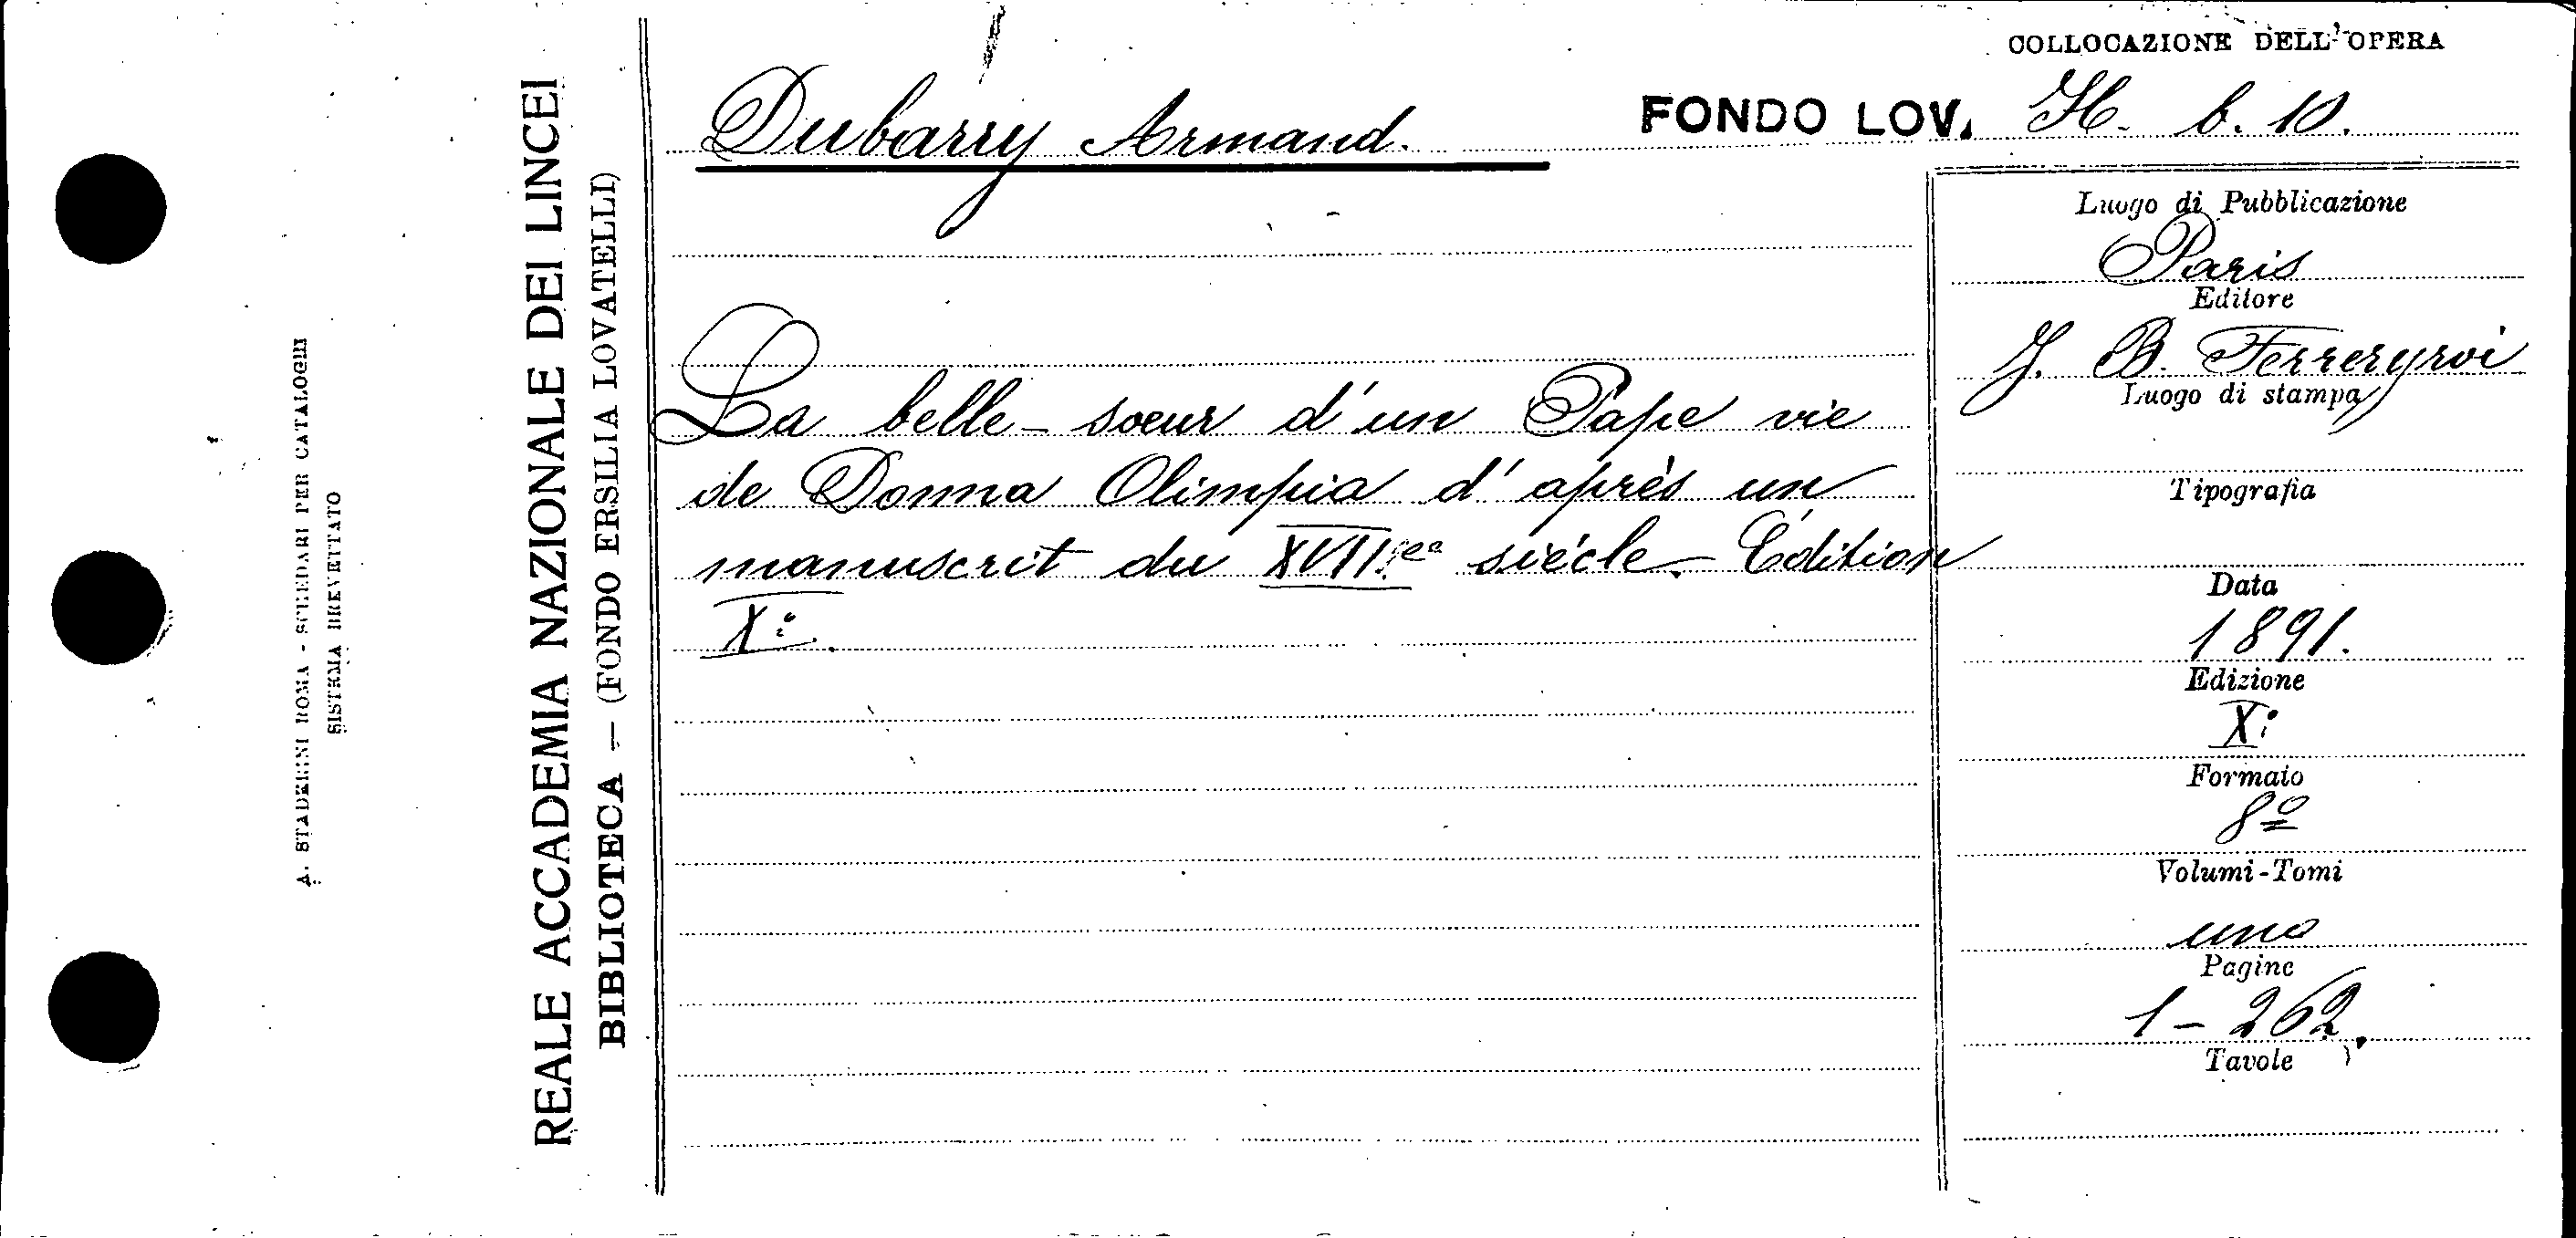 A. STADERINI ROMA - SCHEDARI PER CATALOGHI
SISTEMA BREVETTATO
REALE ACCADEMIA NAZIONALE DEI LINCEI
BIBLIOTECA — (FONDO ERSILIA LOVATELLI)
COLLOCAZIONE DELL'OPERA
Dubarry Armand. FONDO LOV. H. b. 10.
La belle-soeur d'un Pape vie
de Donna Olimpia d'après un
manuscrit du XVII.e siécle - Édition
X:
Luogo di Pubblicazione
Paris
Editore
J. B. Ferreryroi
Luogo di stampa
Tipografia
Data
1891.
Edizione
X:
Formato
8º
Volumi-Tomi
uno
Pagine
1-262.
Tavole